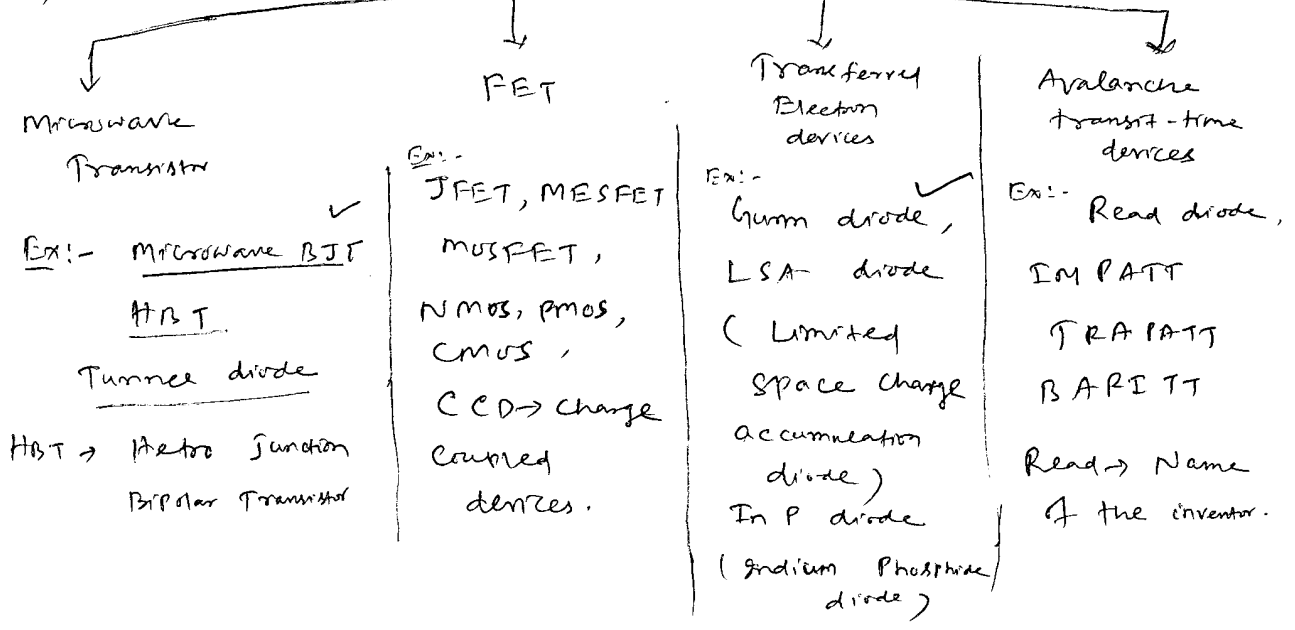 Microwave
Transistor
Ex:- Microwave BJT
HBT
Tunnel diode
HBT → Hetro Junction
Bipolar Transistor
FET
Ex:-
JFET, MESFET
MOSFET,
NMOS, PMOS,
CMOS,
CCD → Charge
Coupled
devices.
Transferred
Electron
devices
Ex:-
Gunn diode,
LSA diode
( Limited
Space Charge
accumulation
diode)
In P diode
( Indium Phosphide
diode)
Avalanche
transit-time
devices
Ex:- Read diode,
IMPATT
TRAPATT
BARITT
Read → Name
of the inventor.